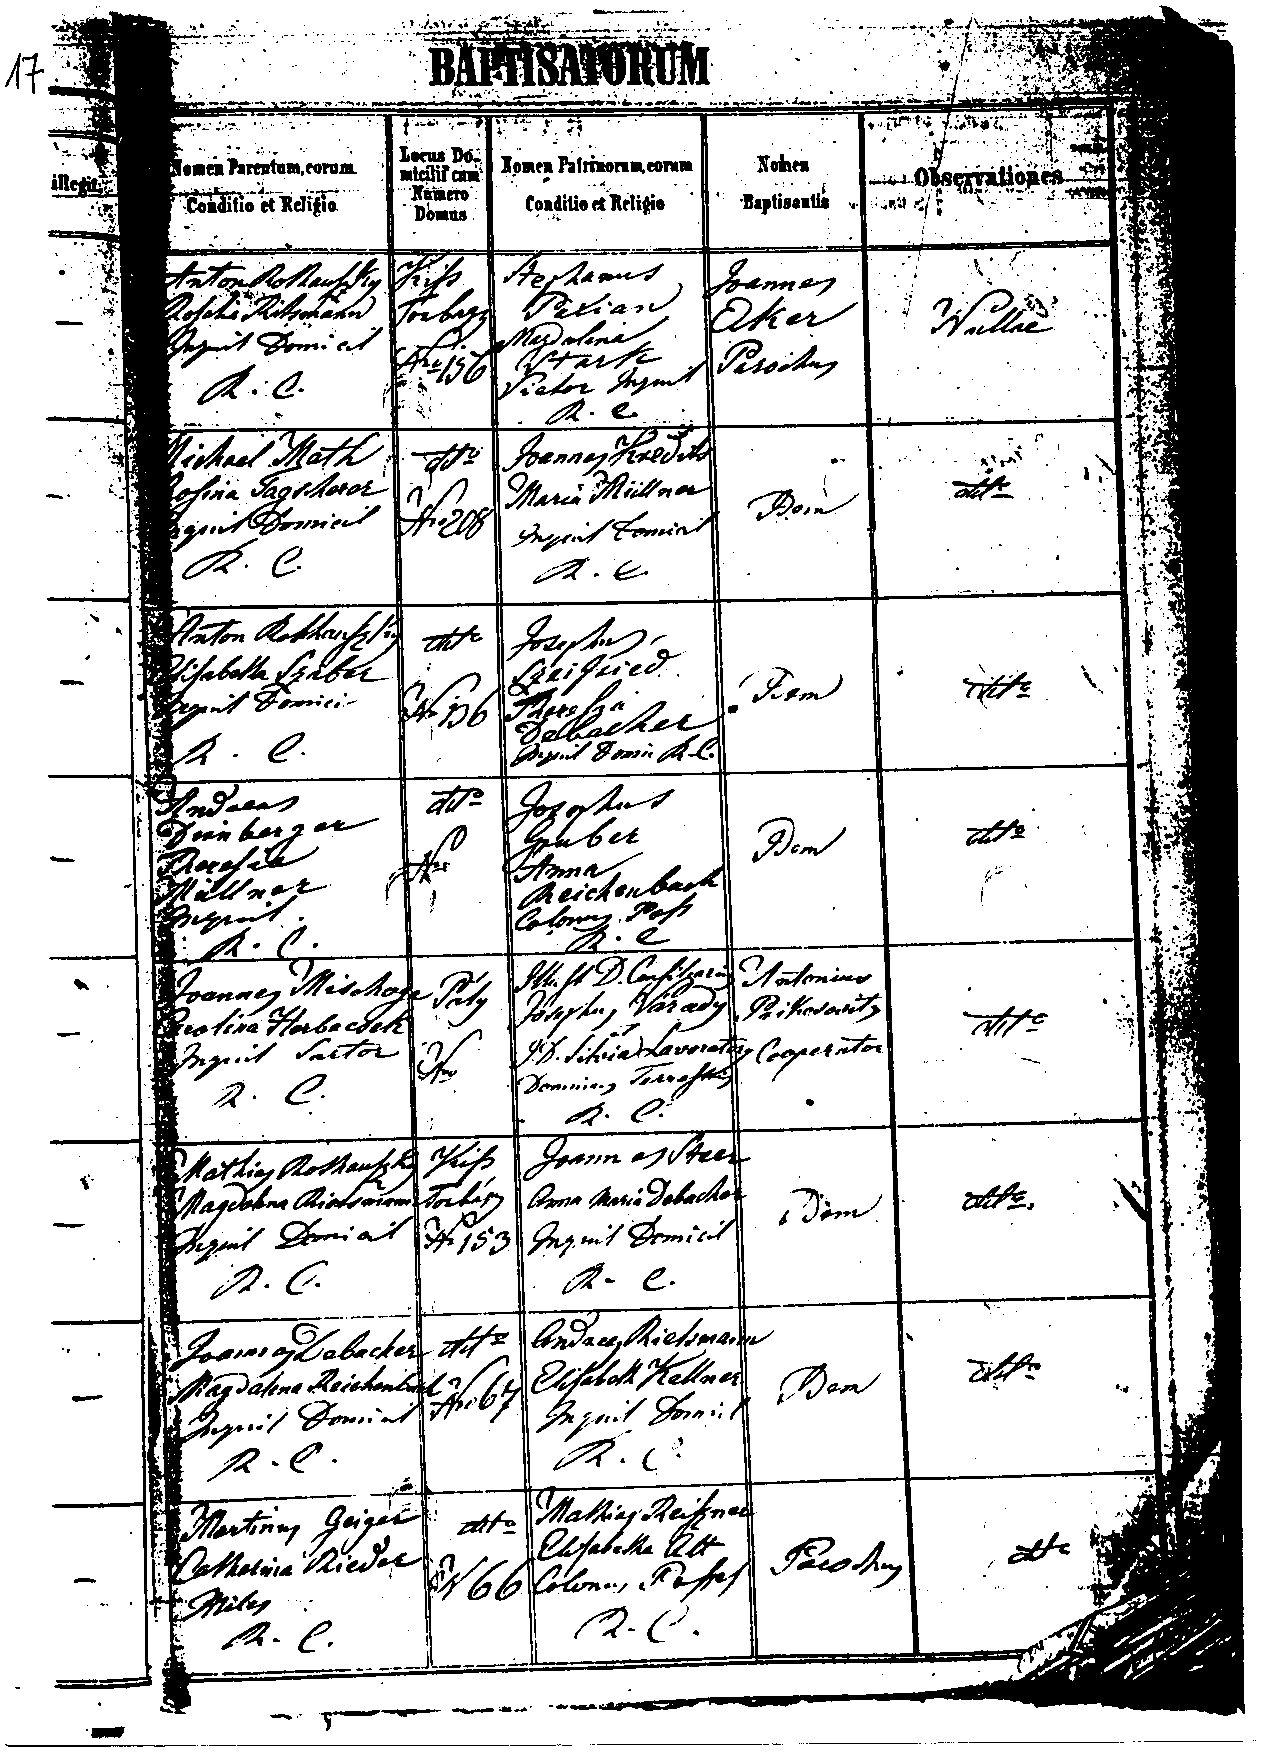 17
BAPTISATORUM
illegit.
Nomen Parentum, eorum
Conditio et Religio
Locus Do-
micilii cum
Numero
Domus
Nomen Patrinorum, eorum
Conditio et Religio
Nomen
Baptisantis
Observationes
Anton
Inquil Domicil
R. C.
Kiss
Torbágy
Nro 156
Stephanus
Magdalena
Stark
Inquil
R. C.
Joannes
Eker
Parochus
Nullae
Michael Math
Rosina Tagscherer
Inquil Domicil
R. C.
dtto
Nro 208
Joannes
Maria Müllner
Inquil Domicil
R. C.
Dem
dtto
Anton
Elisabetha Szabor
Inquil Domici
R. C.
dtto
Nro 156
Josephus
Szeifried
Theresia
Debacher
Inquil Domic R. C.
Dem
dtto
Andreas
Deinberger
Theresia
Müllner
Inquil.
R. C.
dtto
Nro
Josephus
Gruber
Anna
Reichenbach
Colonus Poss
R. C
Dem
dtto
Joannes
Carolina
Inquil Sartor
R. C.
Páty
Nro
Josephus Várady
et
Silvia
Dominus Terrestris
R. C.
Antonius
Cooperator
dtto
Mathias
Magdalena Rietsmann
Inquil Domicil
R. C.
Kiss
Torbágy
Nro 153
Joannes Steer
Anna Maria Debacher
Inquil Domicil
R. C.
Dem
dtto.
Joannes Debacher
Magdalena Reichenbach
Inquil Domicil
R. C.
dtto
Nro 67
Andreas Rietsmann
Elisabeth Kellner
Inquil Domicil
R. C.
Dem
dtto
Martinus Geiger
Catharina Rieder
Miles
R. C.
dtto
N 66
Mathias
Elisabetha Alt
Colonus
R. C.
Parochus
dtto